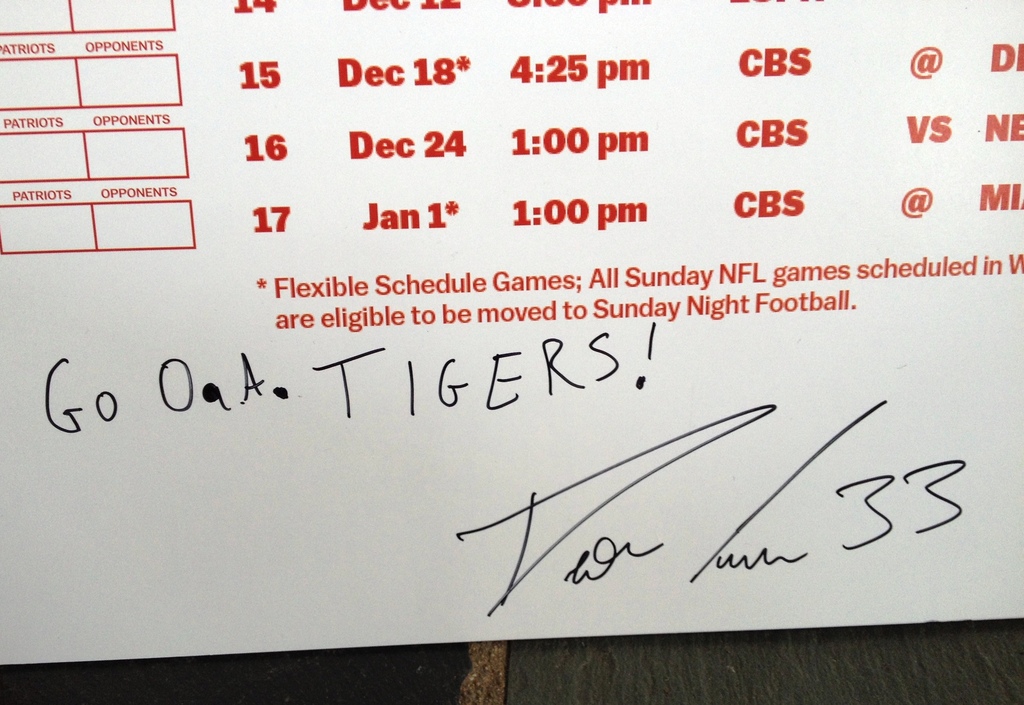 14 Dec 12
PATRIOTS OPPONENTS
15 Dec 18* 4:25 pm CBS @
PATRIOTS OPPONENTS
16 Dec 24 1:00 pm CBS VS NE
PATRIOTS OPPONENTS
17 Jan 1* 1:00 pm CBS @ MIA
* Flexible Schedule Games; All Sunday NFL games scheduled in W
are eligible to be moved to Sunday Night Football.
Go O.A. TIGERS!
33